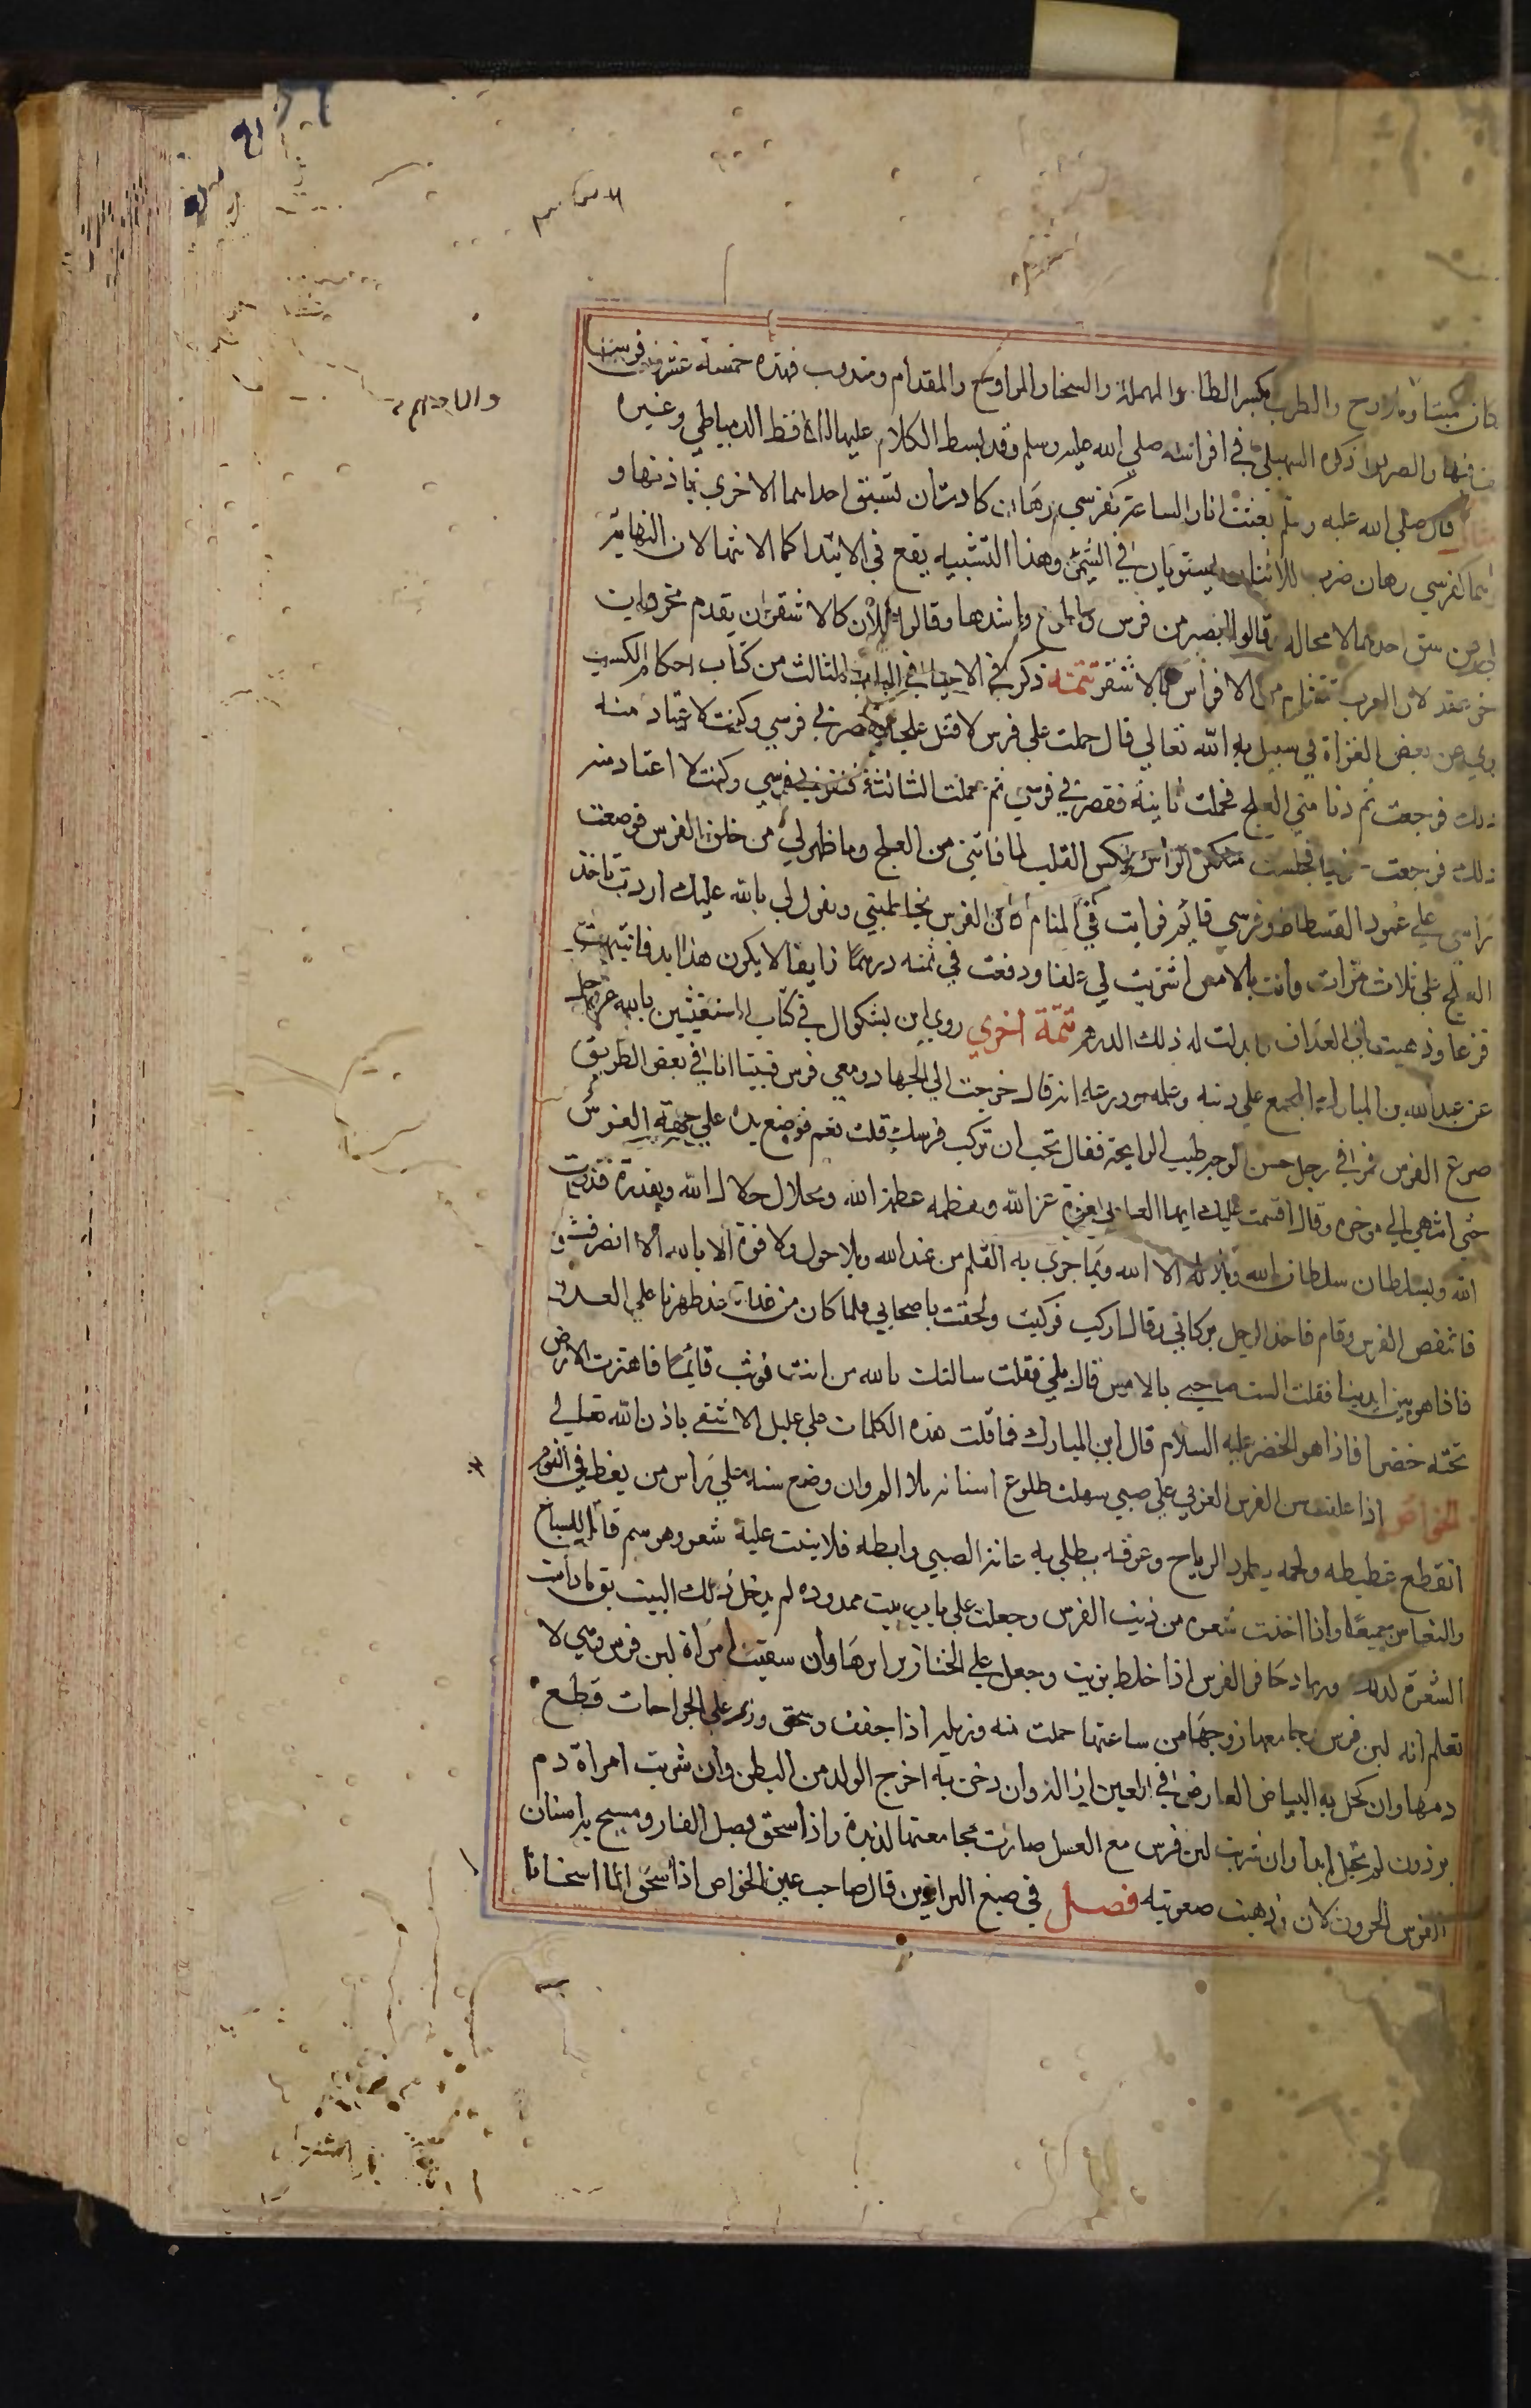 كان كميتا وملاوح والطرب بكسر الطا المهملة والسخا والمراوح والمقدام ومندوب فهذه خمسة عشر فرسا
فيها والصريوا ذكره السهيلي في افراسه صلي الله عليه وسلم وقد بسط الكلام عليها الحافظ الدمياطي وغيره
قال صلي الله عليه وسلم بعثت انا والساعة كفرسي رهان كادت ان تسبق احداهما الاخري باذنها و
هما كفرسي رهان يضرب للاثنان يستويان في الشي وهذا التشبيه يقع في الابتدا كما الانتها لان النهاية
من سبق احدهما لا محاله وقالوا ابصر من فرس واطوع واشدها وقالوا فلان كالاشقر ان يقدم نحر وان
خر عقر لان العرب تتشام من الافراس بالاشقر تتمه ذكر في الاحيا في الباب الثالث من كتاب احكام الكسب
روي عن بعض الغزاة في سبيل الله تعالي قال حملت علي فرس لاقتل علجا فقصر بي فرسي وكنت لا اعتاد منه
ذلك فرجعت ثم دنا مني العلج فحملت ثانية فقصر بي فرسي ثم حملت الثالثة فنفر بي فرسي وكنت لا اعتاد منه
ذلك فرجعت حزينا فجلست منكس الراس منكس القلب لما فاتني من العلج وما ظهر لي من خلق الفرس فوضعت
راسي علي عمود الفسطاط وفرسي قايم فرايت في المنام كان الفرس يخاطبني ويقول لي بالله عليك اردت تاخذ
العلج علي ثلاث مرات وانت بالامس اشتريت لي علفا ودفعت في ثمنه درهما زايفا لا يكون هذا ابد فانتبهت
فزعا وذهبت الي العلاف وابدلت له ذلك الدرهم تتمة اخري روي ابن بشكوال في كتاب المستغيثين بالله عز وجل
عن عبد الله بن المبارك المجمع علي دينه وعلمه وورعه انه قال خرجت الي الجهاد ومعي فرس فبينا انا في بعض الطريق
صرع الفرس فمر بي رجل حسن الوجه طيب الرايحة فقال تحب ان تركب فرسك قلت نعم فوضع يده علي جبهة الفرس
حتي انتهي الي موخره وقال اقسمت عليك ايها العلة بعزة عز الله وبعظمة عظمة الله وبجلال جلال الله وبقدرة قدرت
الله وبسلطان سلطان الله وبلا اله الا الله وبما جري به القلم من عند الله وبلا حول ولا قوة الا بالله الا انصرفت
فانتفض الفرس وقام فاخذ الرجل بركابي وقال اركب فركبت ولحقت باصحابي فلما كان من غداة غد وظهرنا علي العدو
فاذا هو بين ايدينا فقلت الست صاحبي بالامس قال بلي فقلت سالتك بالله من انت فوثب قايما فاهتزت الارض
تحته خضرا فاذا هو الخضر عليه السلام قال ابن المبارك فما قلت هذه الكلمات علي عليل الا شفي باذن الله تعالي
الخواص اذا علق سن الفرس العربي علي صبي سهلت طلوع اسنانه بلا الم وان وضع سنه تحت راس من يغط في النوم
انقطع غطيطه ولحمه يطرد الرياح وعرقه يطلي به عانة الصبي وابطه فلا ينبت عليه شعر وهو سم قاتل للسباع
والثعابين جميعا واذا اخذت شعرة من ذنب الفرس وجعلت علي باب بيت ممدوده لم يدخل ذلك البيت بق ما دامت
الشعرة كذلك ورماد حافر الفرس اذا خلط بزيت وجعل علي الخنازير ابراها وان سقيت امراة لبن فرس وهي لا
تعلم انه لبن فرس وجامعها زوجها من ساعتها حملت منه وزبله اذا جفف وسحق وذر علي الجراحات قطع
دمها وان كحل به البياض العارض في العين ازاله وان دخن به اخرج الولد من البطن وان شربت امراة دم
برذون لم تحبل ابدا وان شربت لبن فرس مع العسل صارت مجامعتها لذيذة واذا سحق بصل الفار ومسح به اسنان
الفرس الحرون لان وذهبت صعوبته فصل في صبغ البراذين قال صاحب عين الخواص اذا سخن الما اسخانا